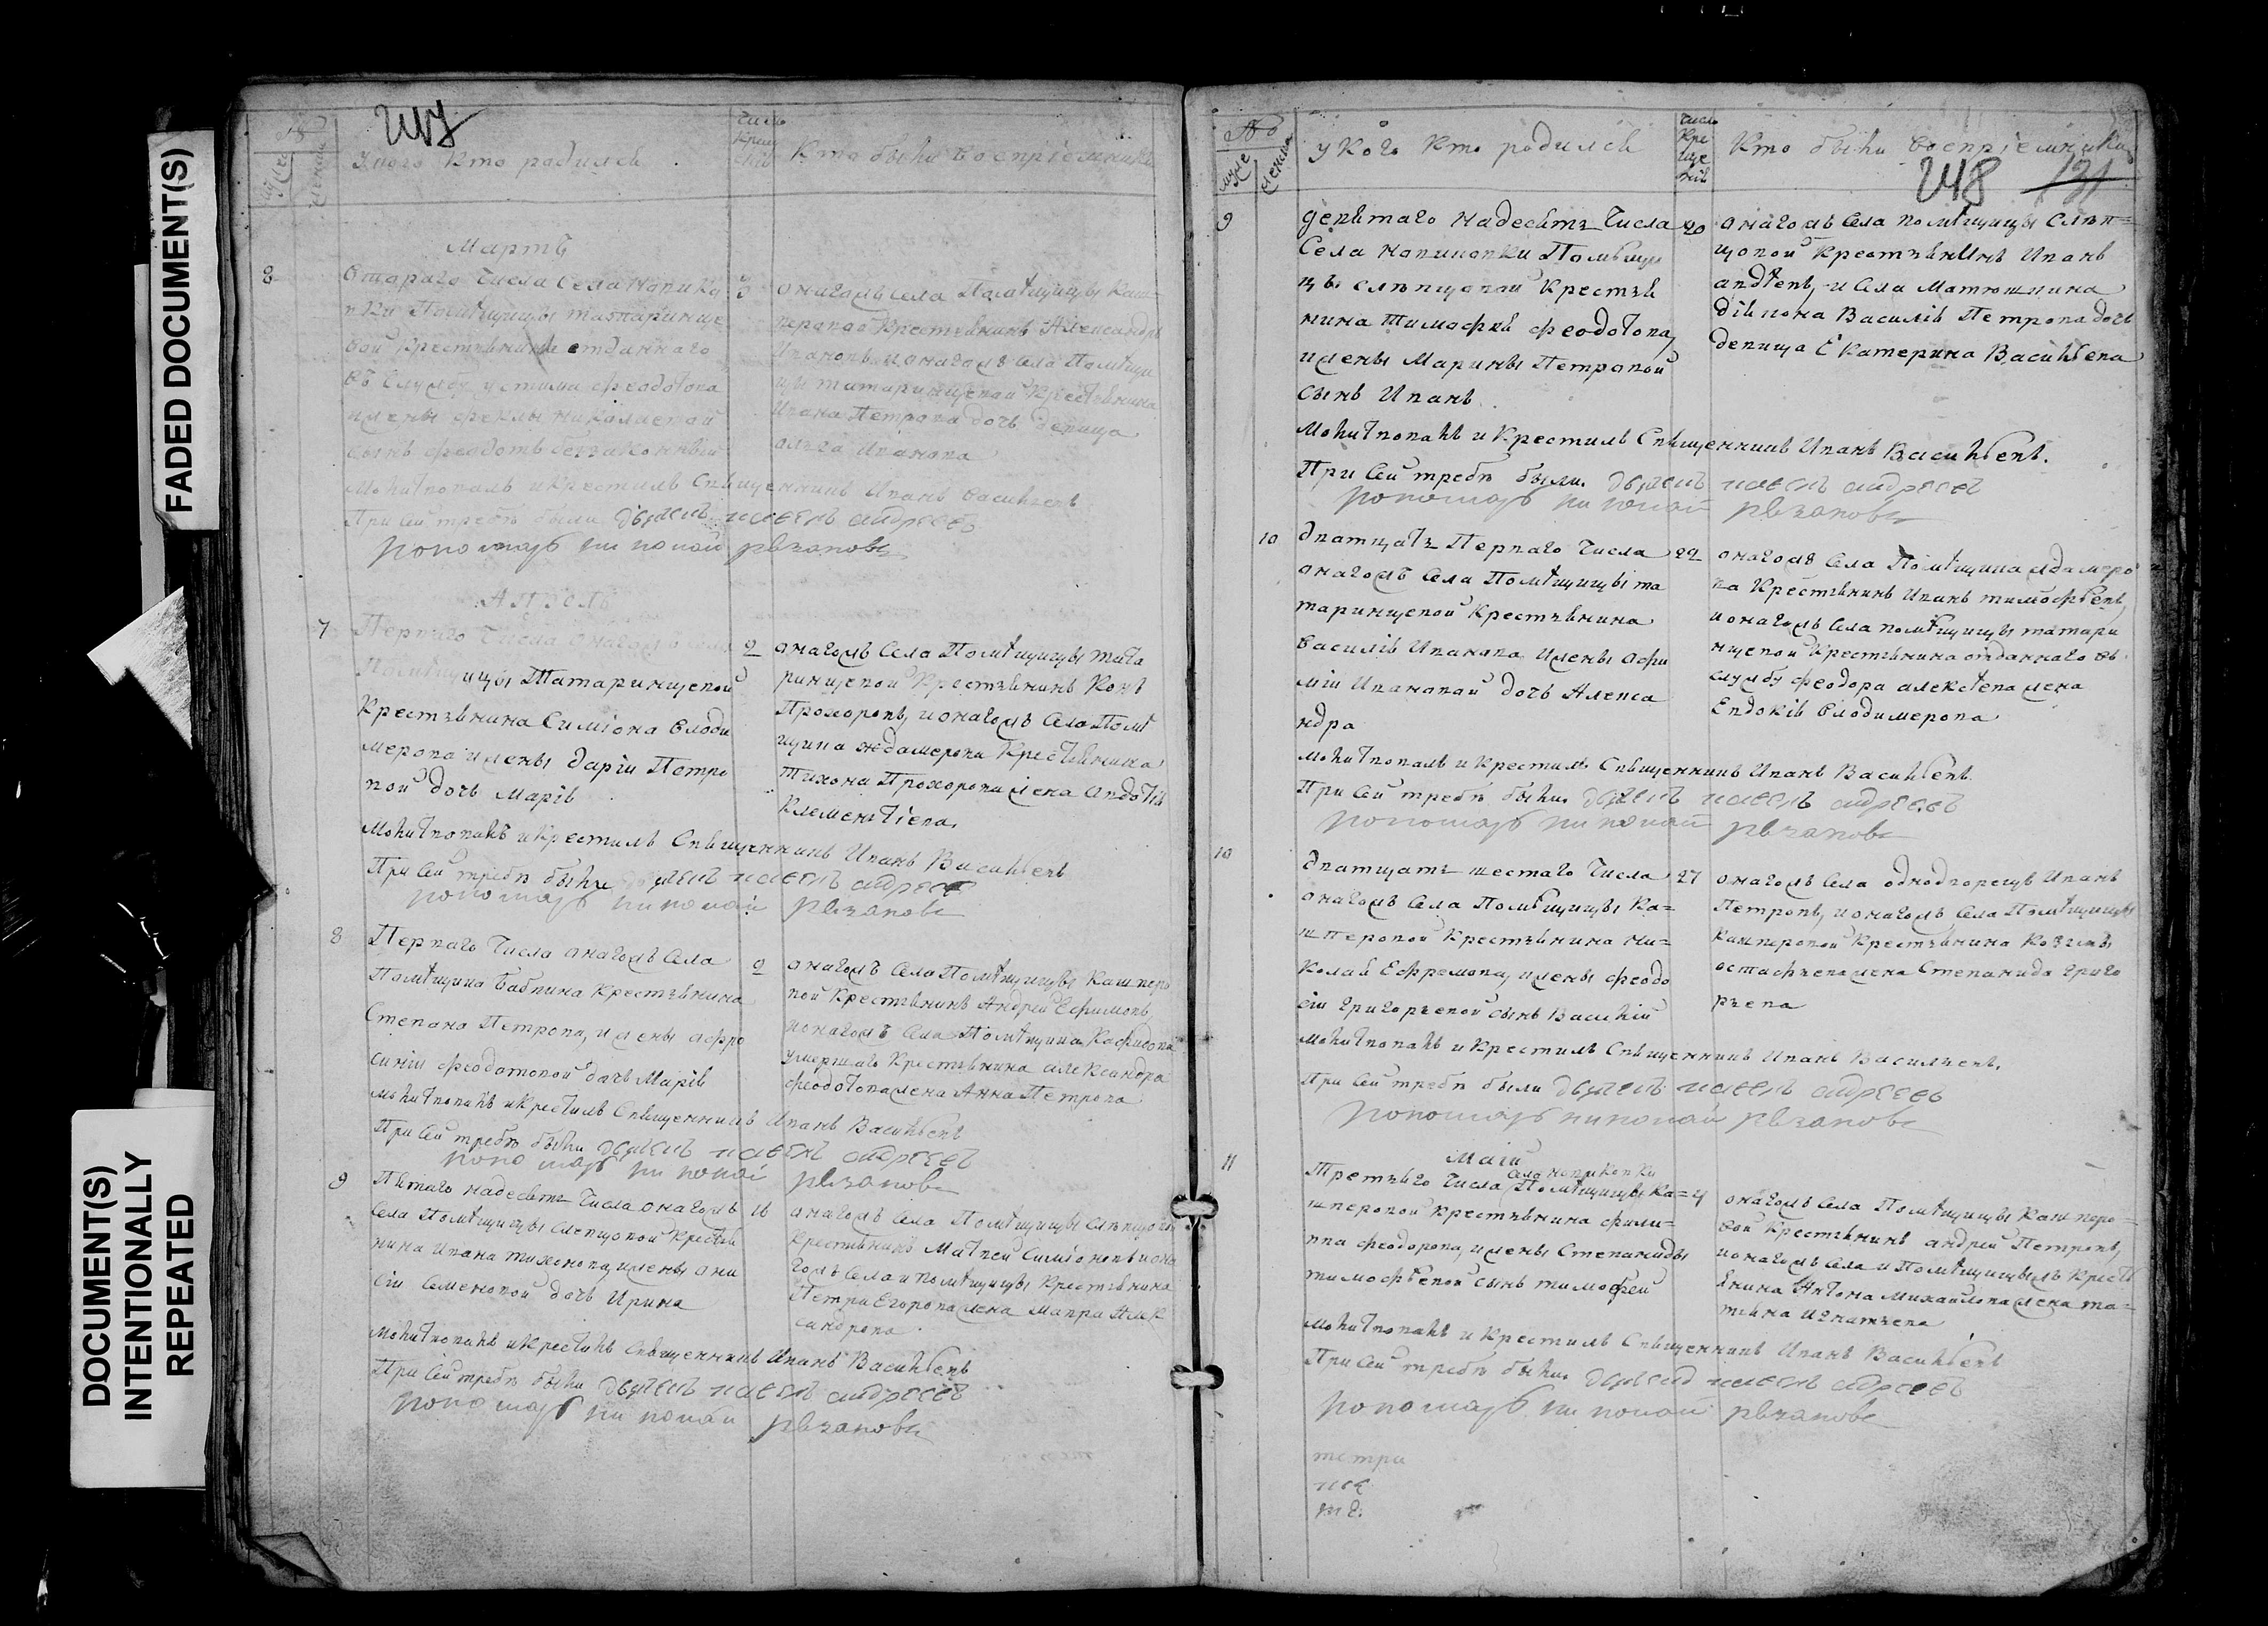 FADED DOCUMENT(S)
DOCUMENT(S)
INTENTIONALLY
REPEATED
247
У кого кто родился
Числ
Крещ
Кто были восприемники
Мартъ
8
Втораго числа села
3
онагожъ села Помѣщицы Каш=
перовой крестьянинъ Александръ
Ивановъ и онагожъ села Помѣщи
цы татаринцевой крестьянина
Ивана Петрова дочь девица
Ивановна
въ службу устина феодотова
и жены феклы николаевой
сынъ феодотъ беззаконный
Молитвовалъ и крестилъ Священникъ Иванъ Васильевъ
При сей требѣ были дьячекъ павелъ андреевъ
пономарь николай рязановъ
Апрель
7
Перваго числа онагожъ села
2
Помѣщицы Татаринцевой
крестьянина Симиона Влоди
мерова и жены Дарiи Петро
вой дочь Марiя
онагожъ села Помѣщицы тата
ринцевой крестьянинъ
Прохоровъ, и онагожъ села Помѣ
щика ждамерова крестьянина
Тихона Прохорова жена Авдотiя
Клементiева.
Молитвовалъ и крестилъ Священникъ Иванъ Васильевъ
При сей требѣ были дьячекъ павелъ андреевъ
пономарь николай рязановъ
8
Перваго числа онагожъ села
2
Помѣщика Бабкина крестьянина
Степана Петрова, и жены Афро
синiи феодотовой дочь Марiя
онагожъ села Помѣщицы Кашперо
вой крестьянинъ Андрей Ефимовъ,
и онагожъ села Помѣщика
умершаго крестьянина александра
феодотова жена Анна Петрова
молитвовалъ и крестилъ Священникъ Иванъ Васильевъ
При сей требѣ были дьячекъ павелъ андреевъ
пономарь николай рязановъ
9
Пятаго надесять числа онагожъ
16
села Помѣщицы слепцовой крестья
нина Ивана тихонова, и жены они
сiи Семеновой дочь Ирина
онагожъ села Помѣщицы слѣпцовой
крестьянинъ Матвей Симiоновъ и она
гожъ села и помѣщицы крестьянина
Петра Егорова жена мавра Алек
сандрова
Молитвовалъ и крестилъ Священникъ Иванъ Васильевъ
При сей требѣ были дьячекъ павелъ андреевъ
пономарь николай рязановъ
№
муже
женска
У кого кто родился
Числ
Кре
ще
нiя
Кто были восприемники
248 131
9
девятаго надесять числа
20
Села Помѣщи
цы слѣпцовой крестья
нина Тимофея феодотова,
и жены Марины Петровой
сынъ Иванъ
онагожъ села помѣщицы слѣп=
цовой крестьянинъ Иванъ
авдѣевъ, и села Матюшкина
дiакона Василiя Петрова дочь
девица Екатерина Васильева
Молитвовалъ и крестилъ Священникъ Иванъ Васильевъ.
При сей требѣ были дьячекъ павелъ андреевъ
пономарь николай рязановъ
10
дватцать перваго числа
22
онагожъ села Помѣщицы та
таринцевой крестьянина
Василiя Иванова и жены Афи
мiи Ивановой дочь Алекса
ндра
онагожъ села Помѣщика ждамеро
ва крестьянинъ Иванъ тимофѣевъ,
и онагожъ села помѣщицы татари
нцевой крестьянина отданнаго въ
службу феодора алексѣева жена
Евдокiя Влодимерова
молитвовалъ и крестилъ Священникъ Иванъ Васильевъ
При сей требѣ были дьячекъ павелъ андреевъ
пономарь николай рязановъ
10
дватцать шестаго числа
27
онагожъ села Помѣщицы Ка=
шперовой крестьянина Ни=
колая Ефремова, и жены феодо
сiи григорьевой сынъ Василiй
онагожъ села однодворецъ Иванъ
Петровъ, и онагожъ села Помѣщицы
Кашперовой крестьянина Козьмы
остафьева жена Степанида григо
рьева
Молитвовалъ и крестилъ Священникъ Иванъ Васильевъ.
При сей требѣ были дьячекъ павелъ андреевъ
пономарь николай рязановъ
11
Маiй
Третьяго числа Помѣщицы Ка=
4
шперовой крестьянина фили=
ппа феодорова, и жены Степаниды
тимофѣевой сынъ тимофей
онагожъ села Помѣщицы Кашперо=
вой крестьянинъ андрей Петровъ,
и онагожъ села и Помѣщицыжъ кресть
янина Антона Михаилова жена та=
тьяна Игнатьева
молитвовалъ и крестилъ Священникъ Иванъ Васильевъ
При сей требѣ были дьячекъ павелъ андреевъ
пономарь николай рязановъ